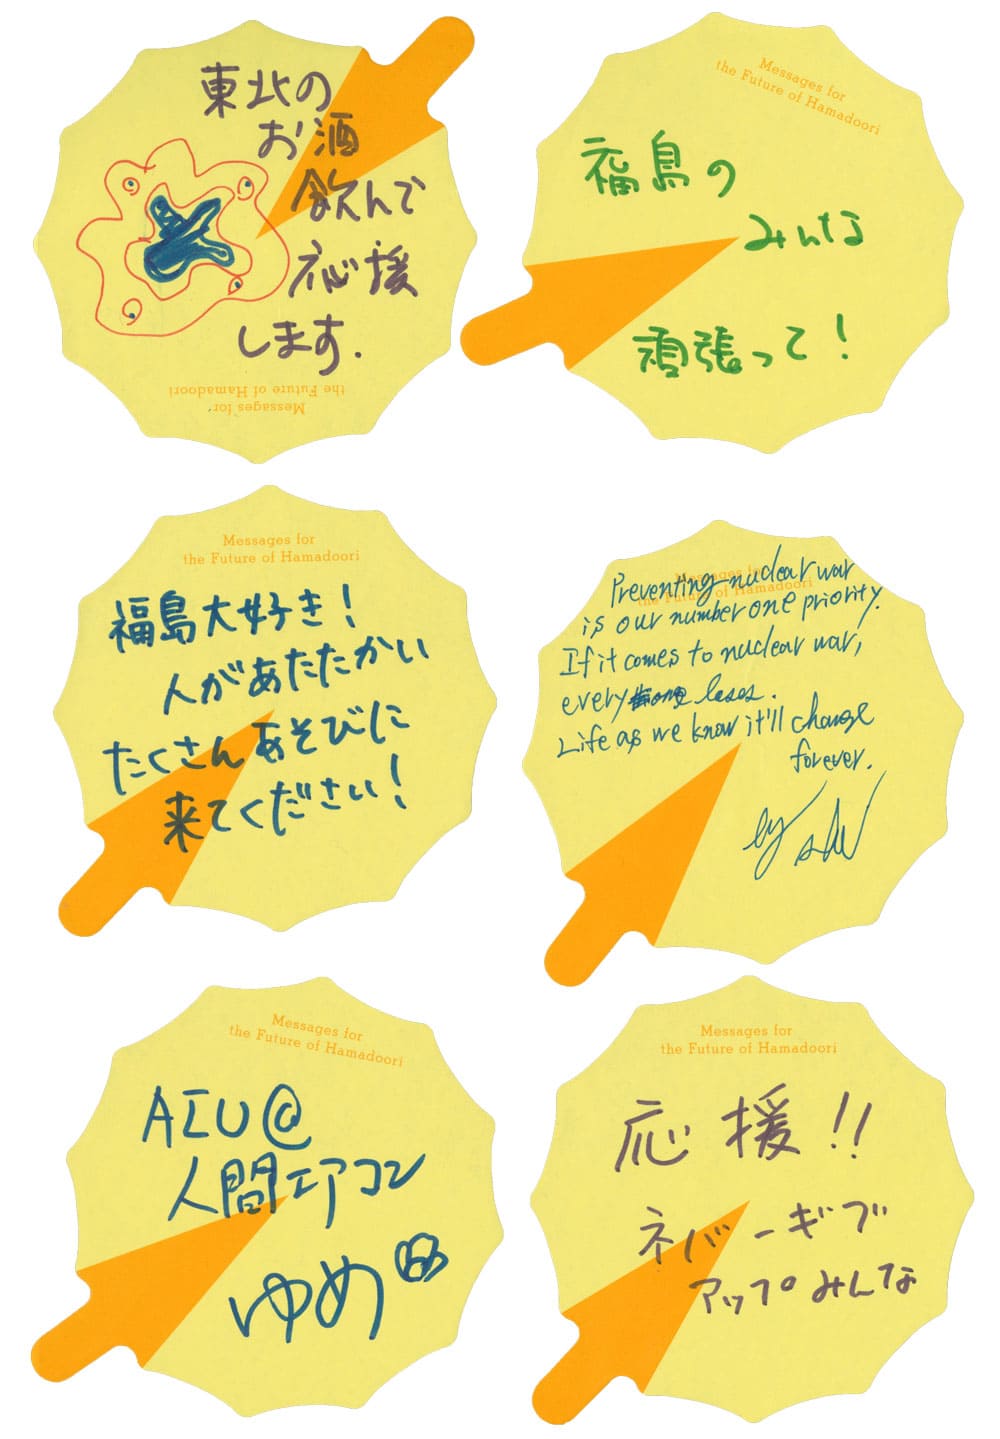 東北の
お酒
飲んで
応援
します.
Messages for
the Future of Hamadoori
Messages for
the Future of Hamadoori
福島の
みんな
頑張って!
Messages for
the Future of Hamadoori
福島大好き!
人があたたかい
たくさんあそびに
来てください!
Messages for
the Future of Hamadoori
Preventing nuclear war
is our number one priority.
If it comes to nuclear war,
every one loses.
Life as we know it'll change
forever.
by
Messages for
the Future of Hamadoori
AIU@
人間エアコン
ゆめ
Messages for
the Future of Hamadoori
応援!!
ネバーギブ
アップ。みんな